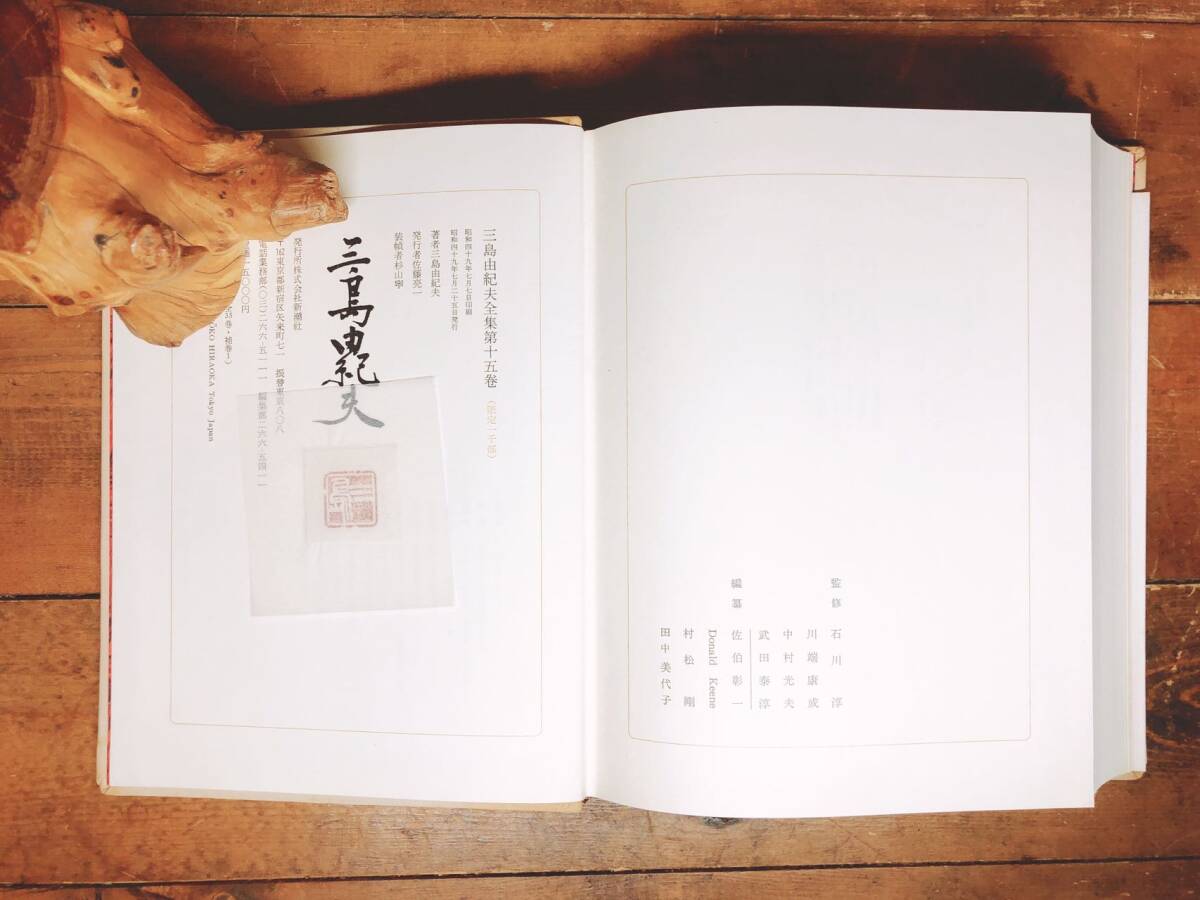 監修
石川淳
川端康成
中村光夫
武田泰淳
編纂
佐伯彰一
Donald Keene
村松剛
田中美代子
三島由紀夫全集第十五巻（限定一千部）
昭和四十九年七月七日印刷
昭和四十九年七月二十五日発行
著者三島由紀夫
発行者佐藤亮一
装幀者杉山寧
三島由紀夫
三島
発行所株式会社新潮社
〒162東京都新宿区矢来町七一 振替東京八〇八
電話業務部(〇三)二六六-五一一一 編集部二六六-五四一一
五〇〇〇円
35巻・補巻1）
YŌKO HIRAOKA Tokyo Japan